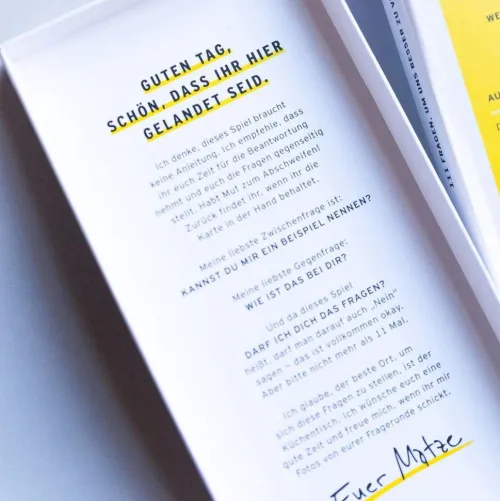 GUTEN TAG,
SCHÖN, DASS IHR HIER
GELANDET SEID.
Ich denke, dieses Spiel braucht
keine Anleitung. Ich empfehle, dass
ihr euch Zeit für die Beantwortung
nehmt und euch die Fragen gegenseitig
stellt. Habt Mut zum Abschweifen!
Zurück findet ihr, wenn ihr die
Karte in der Hand behaltet.
Meine liebste Zwischenfrage ist:
KANNST DU MIR EIN BEISPIEL NENNEN?
Meine liebste Gegenfrage:
WIE IST DAS BEI DIR?
Und da dieses Spiel
DARF ICH DICH DAS FRAGEN?
heißt, darf man darauf auch „Nein“
sagen – das ist vollkommen okay.
Aber bitte nicht mehr als 11 Mal.
Ich glaube, der beste Ort, um
sich diese Fragen zu stellen, ist der
Küchentisch. Ich wünsche euch eine
gute Zeit und freue mich, wenn ihr mir
Fotos von eurer Fragerunde schickt.
Euer Matze
111 FRAGEN, UM UNS BESSER ZU V
WE
AU